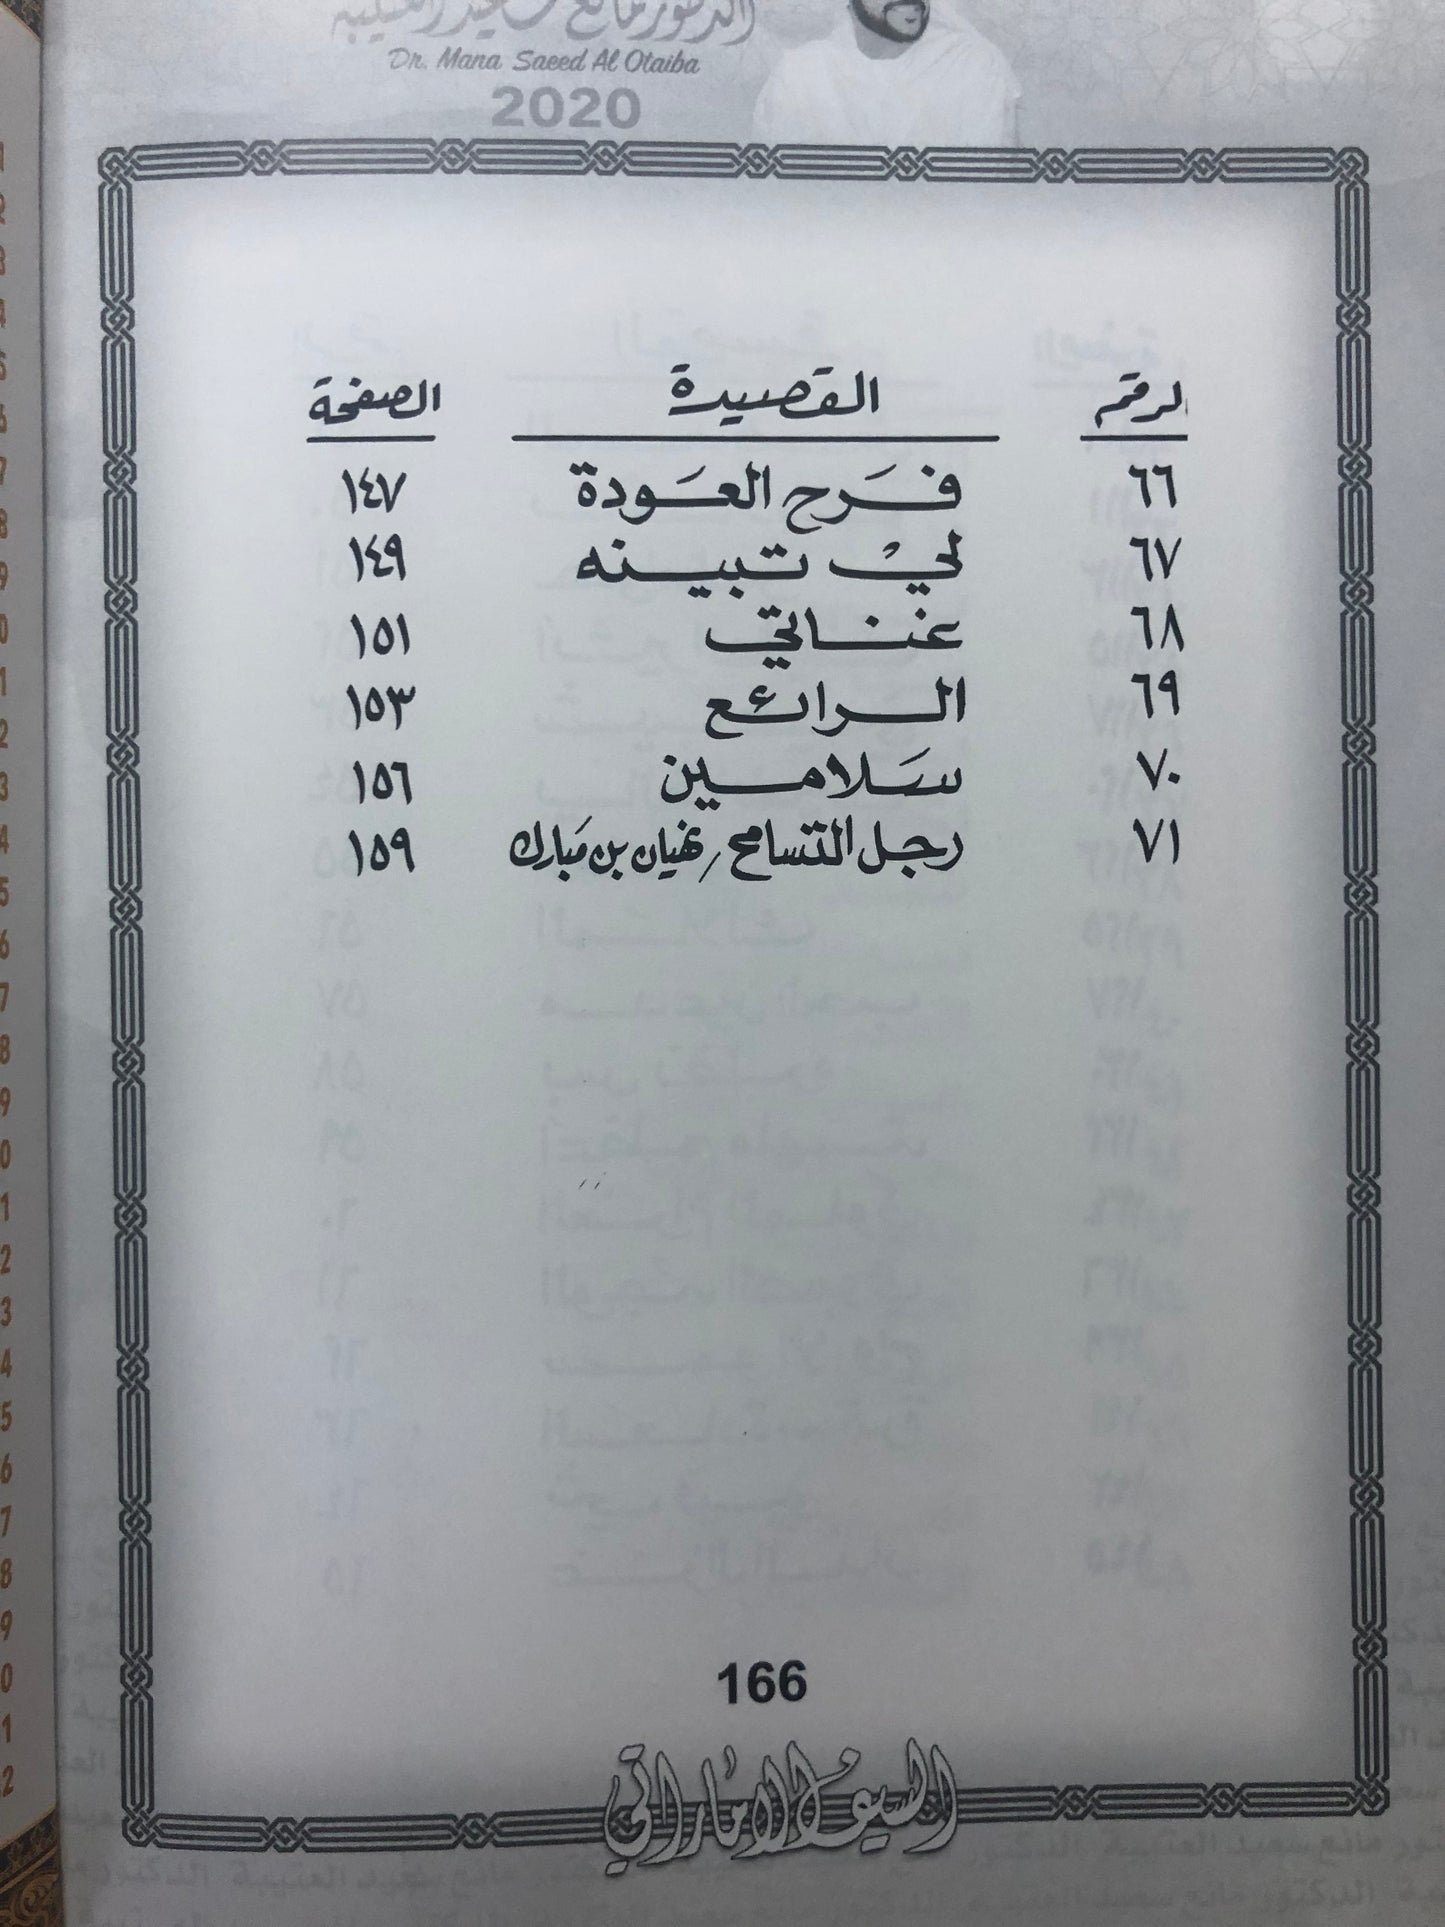 الدكتور مانع سعيد العتيبة
Dr. Mana Saeed Al Otaiba
2020
الرقم القصيدة الصفحة
٦٦ فَرَح العَودة ١٤٧
٦٧ ليْ تبينه ١٤٩
٦٨ عنناتي ١٥١
٦٩ الرائع ١٥٣
٧٠ سَلامين ١٥٦
٧١ رجل التسامح / نهيان بن مَبارك ١٥٩
166
السيف الإماراتي